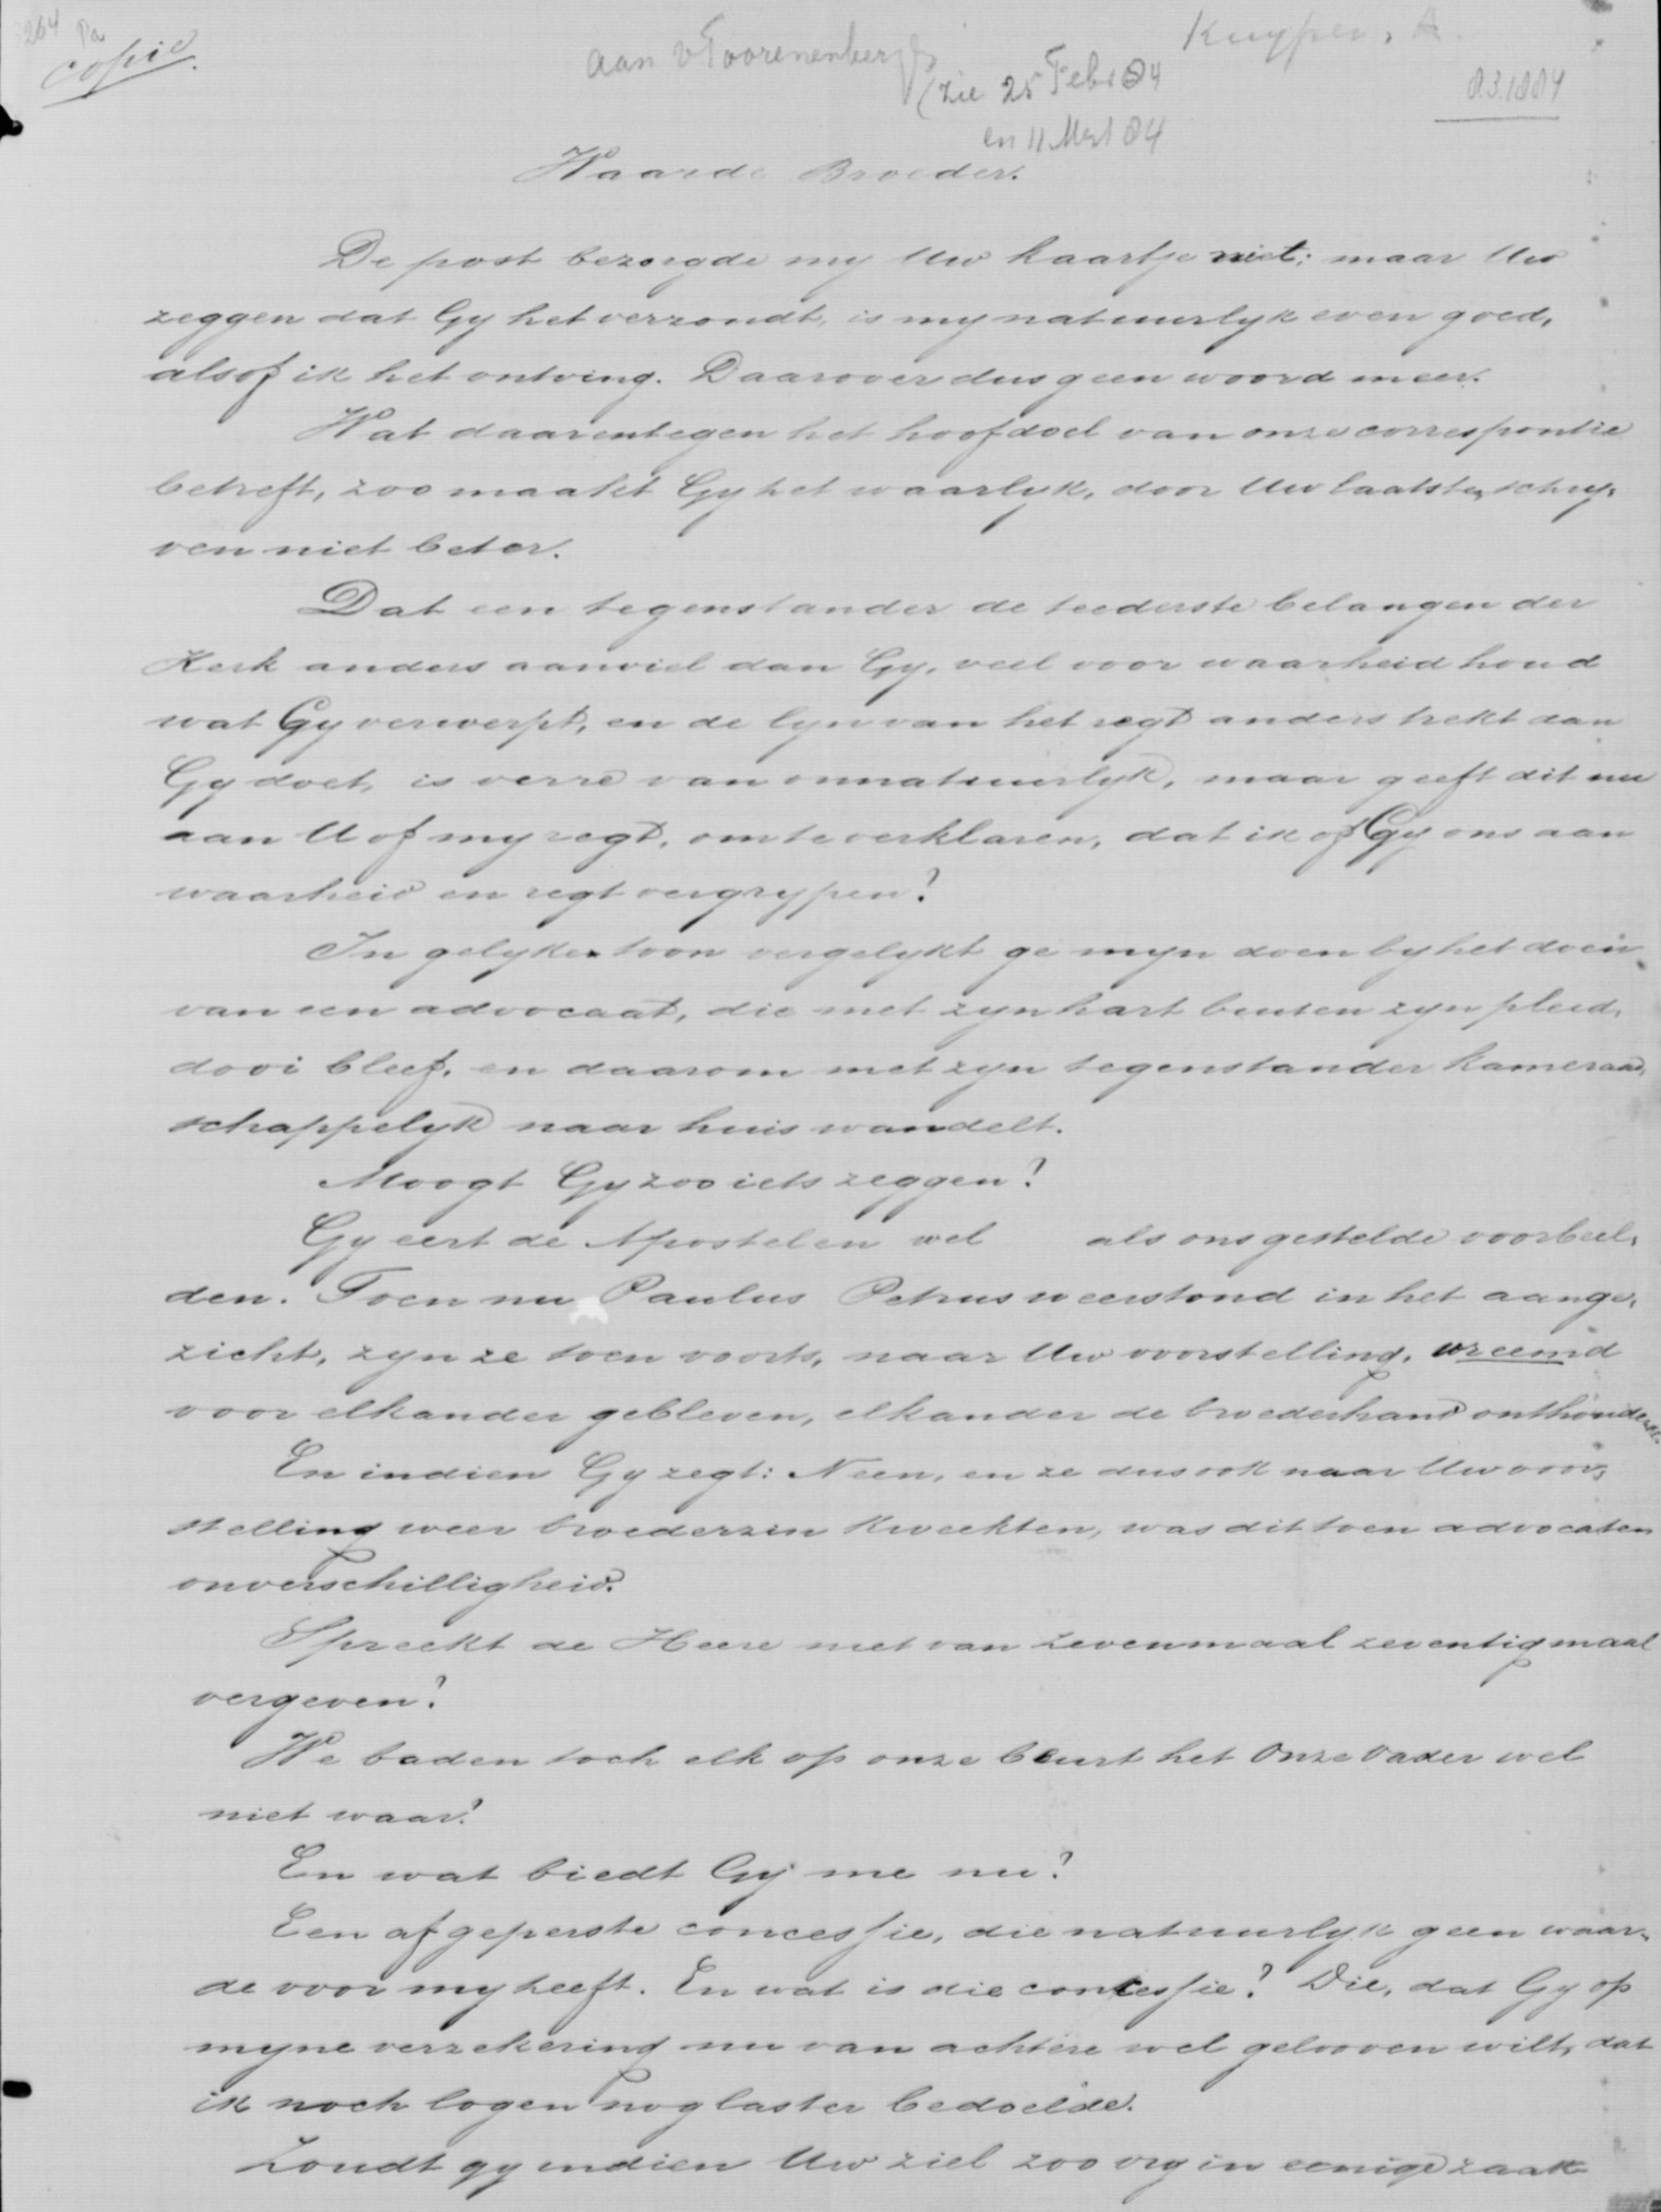 264 Pa
copie.
aan v Toorenenbergh
Kuyper, A.
(zie 25 Febr 84
8.3.1884
en 11 Mrt 84
Waarde Broeder.
De post bezorgde my Uw kaartje niet; maar Uw
zeggen dat Gy het verzondt, is my natuurlyk even goed,
alsof ik het ontving. Daarover dus geen woord meer.
Wat daarentegen het hoofdoel van onze correspontie
betreft, zoo maakt Gy het waarlyk, door Uw laatste, schry-
ven niet beter.
Dat een tegenstander de teederste belangen der
Kerk anders aanviel dan Gy, veel voor waarheid houd
wat Gy verwerpt, en de lyn van het regt anders trekt dan
Gy doet, is verre van onnatuurlyk, maar geeft dit nu
aan U of my regt, om te verklaren, dat ik of Gy ons aan
waarheid en regt vergrypen?
In gelyken toon vergelykt ge myn doen by het doen
van een advocaat, die met zyn hart buiten zyn pleid-
dooi bleef, en daarom met zyn tegenstander kameraad-
schappelyk naar huis wandelt.
Moogt Gy zoo iets zeggen?
Gy eert de Apostelen wel als ons gestelde voorbeel-
den. Toen nu Paulus Petrus weerstond in het aange-
zicht, zyn ze toen voorts, naar Uw voorstelling, vreemd
voor elkander gebleven, elkander de broederhand onthoudend.
En indien Gy zegt: Neen, en ze dus ook naar Uw voor-
stelling weer broederzin kweekten, was dit toen advocaten
onverschilligheid.
Spreekt de Heere niet van zevenmaal zeventigmaal
vergeven?
We baden toch elk op onze beurt het Onze Vader wel
niet waar?
En wat biedt Gy me nu?
Een afgeperste concessie, die natuurlyk geen waar-
de voor my heeft. En wat is die concessie? Die, dat Gy op
myne verzekering nu van achtere wel gelooven wilt, dat
ik noch logen nog laster bedoelde.
Zoudt gy indien Uw ziel zoo vry in eenige zaak